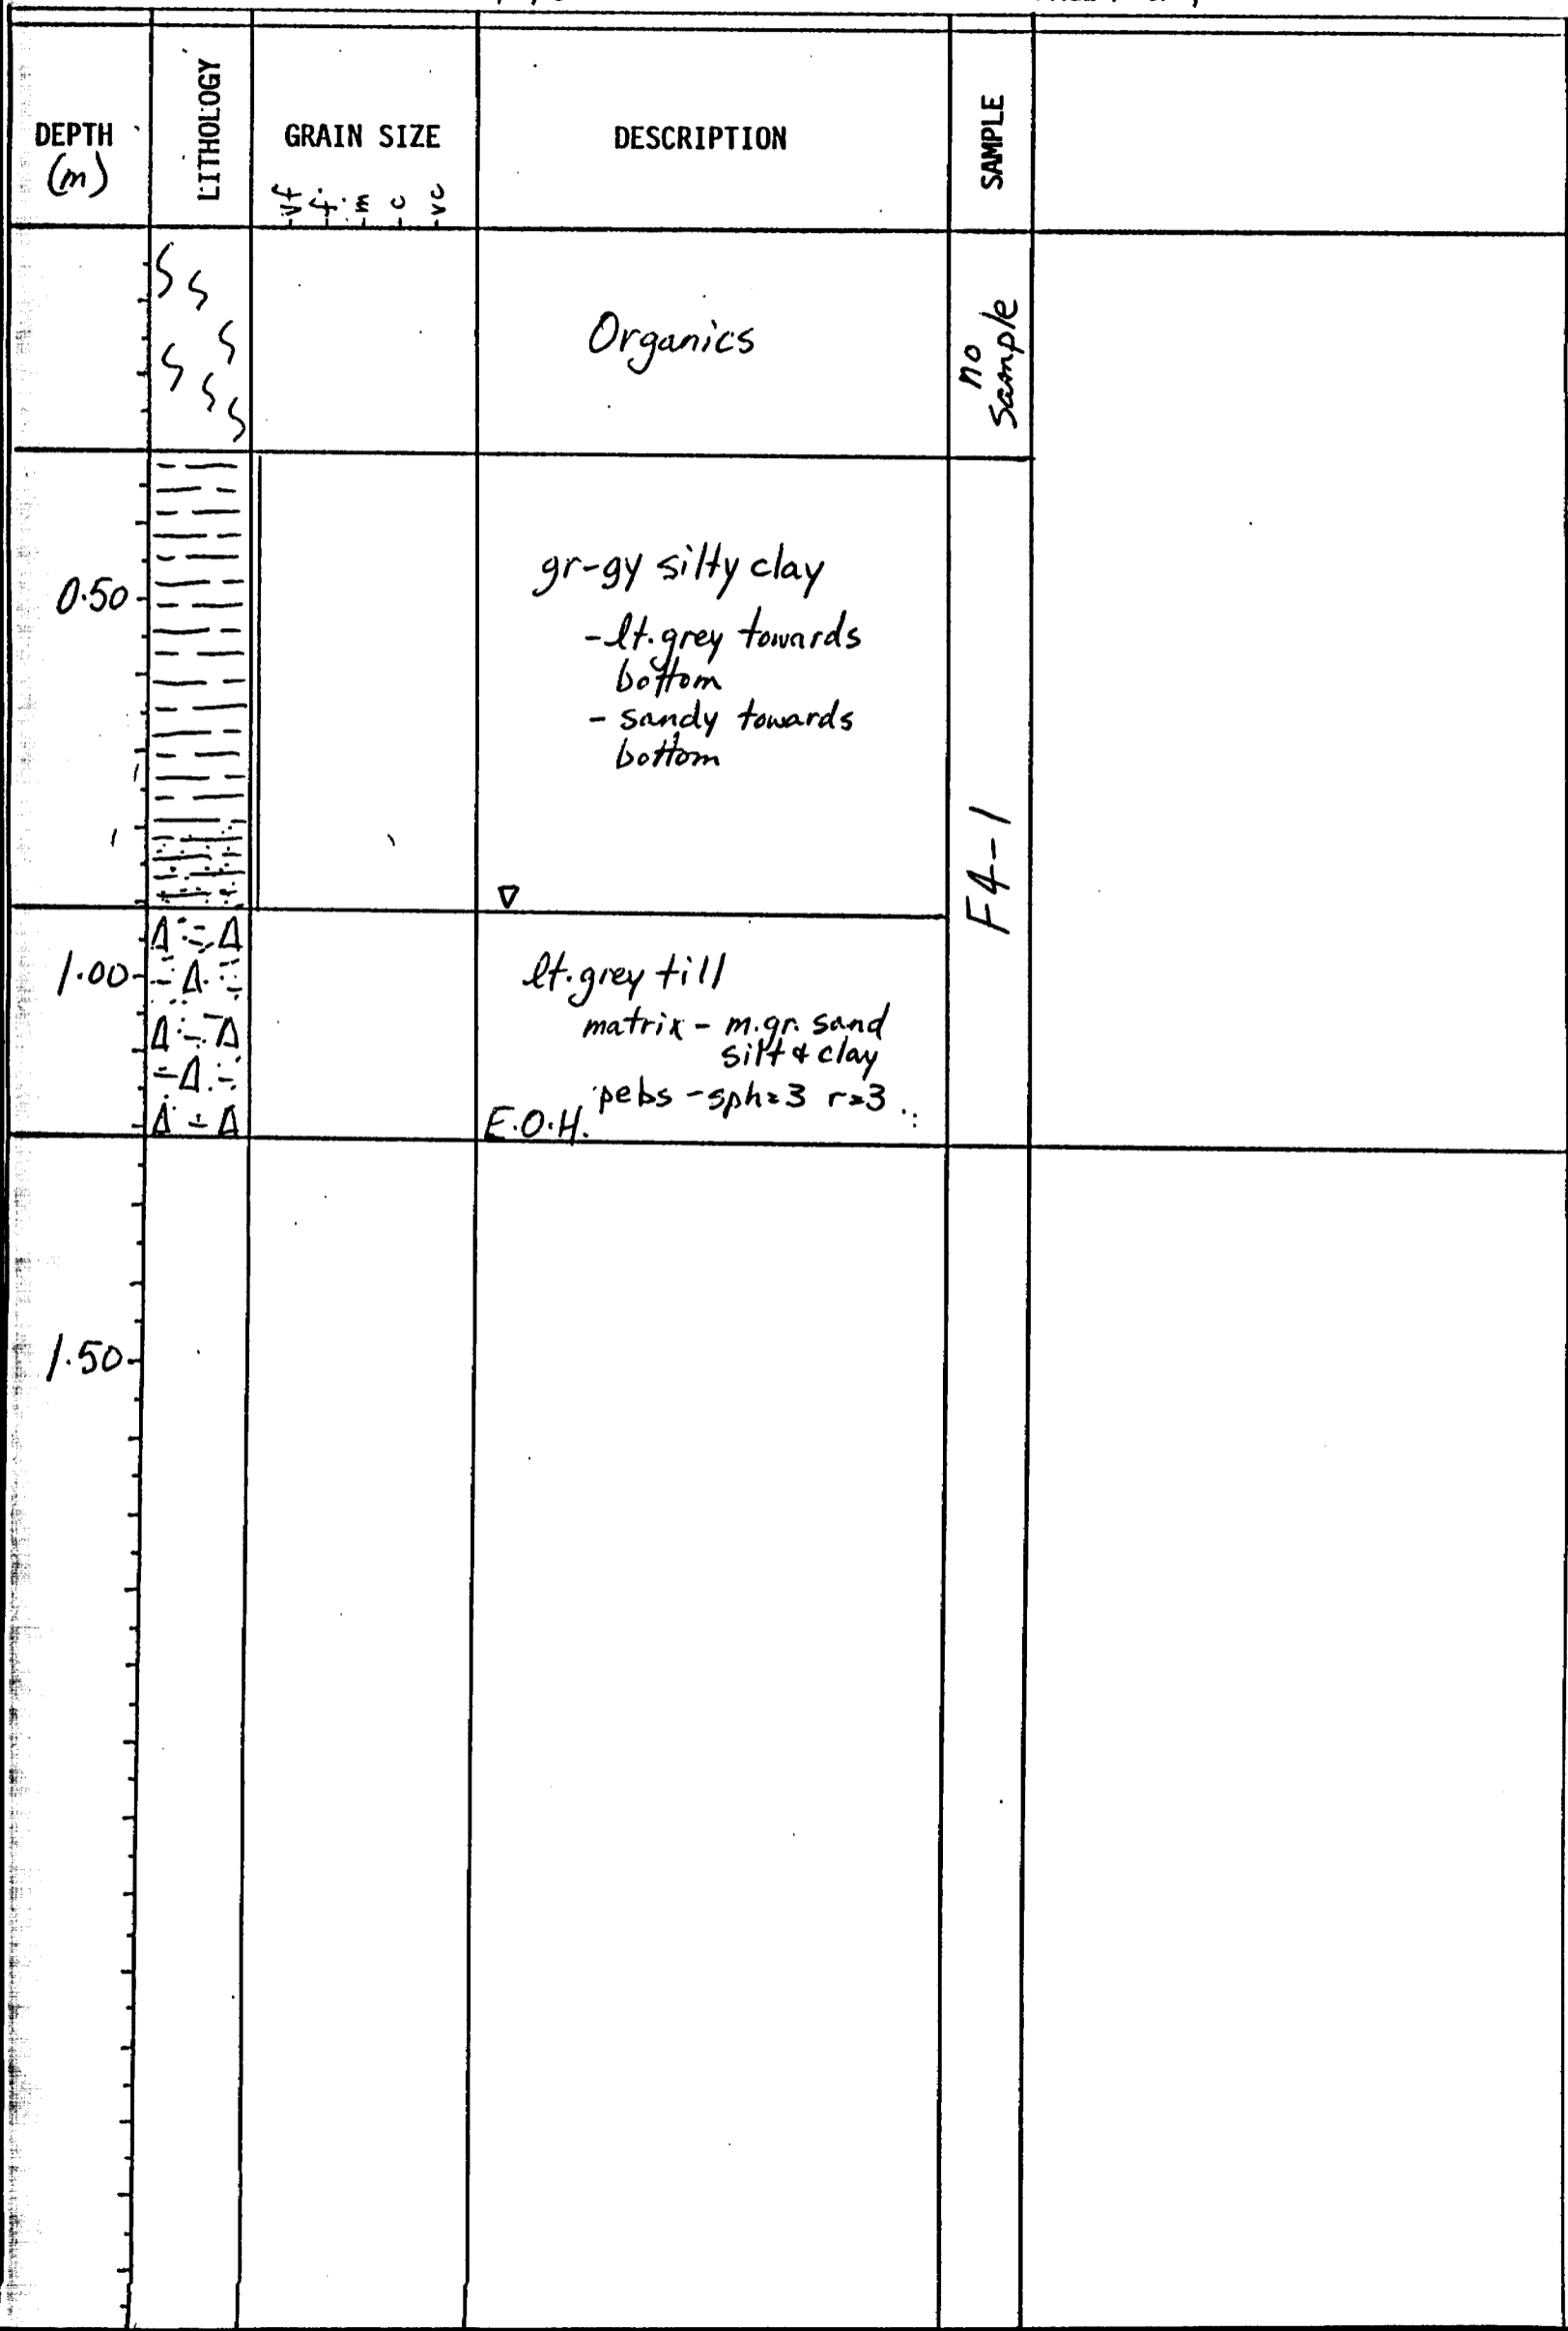 DEPTH
(m)
LITHOLOGY
GRAIN SIZE
vf f m c vc
DESCRIPTION
SAMPLE
Organics
no
sample
0.50
gr-gy silty clay
-lt.grey towards
bottom
- sandy towards
bottom
F4-1
1.00
lt.grey till
matrix - m.gr. sand
silt & clay
pebs - sph=3 r=3
E.O.H.
1.50